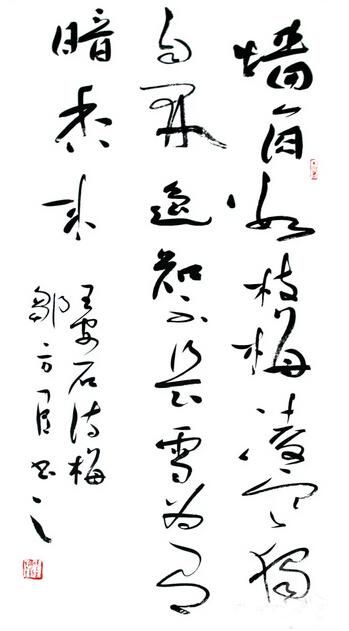 墙角数枝梅凌寒独
自开遥知不是雪为有
暗香来
王安石诗梅
邹方书之